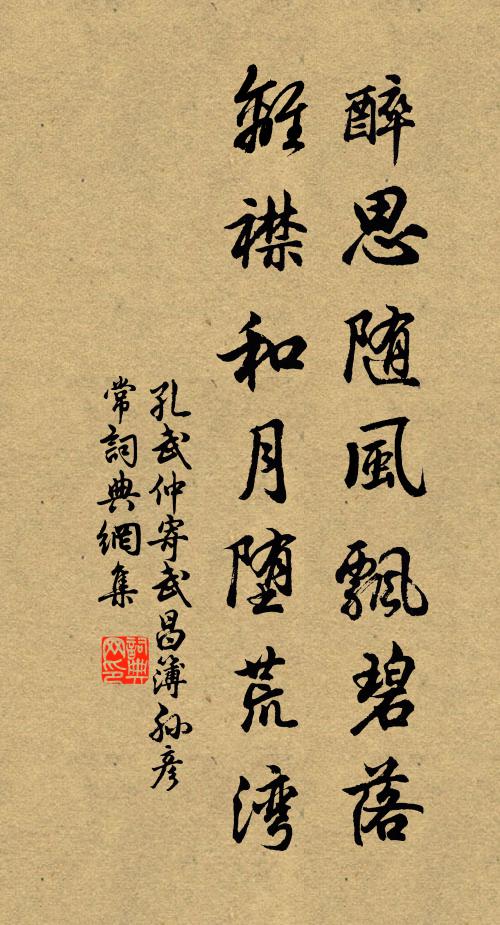 醉思随風飄碧落
離襟和月堕荒湾
孔武仲寄武昌簿孫彦
常詞典網集
詞典网印